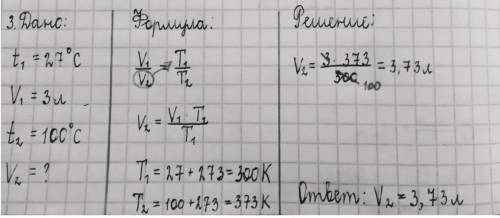 3. Дано:
t₁ = 27°C
V₁ = 3л
t₂ = 100°C
V₂ = ?
Формула:
V₁/V₂ = T₁/T₂
V₂ = V₁ · T₂/T₁
T₁ = 27 + 273 = 300 K
T₂ = 100 + 273 = 373 K
Решение:
V₂ = 3 · 373/300 100 = 3,73 л
Ответ: V₂ = 3,73 л